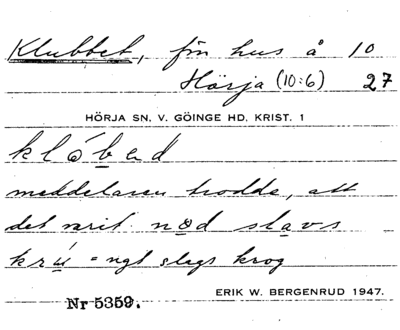 Klubbet, fön hus å 10
Hörja (10:6) 27
HÖRJA SN. V. GÖINGE HD. KRIST. 1
klóbed
meddelaren trodde, att
det varit nød slavs
krú = ngt slags krog
ERIK W. BERGENRUD 1947.
Nr 5359.